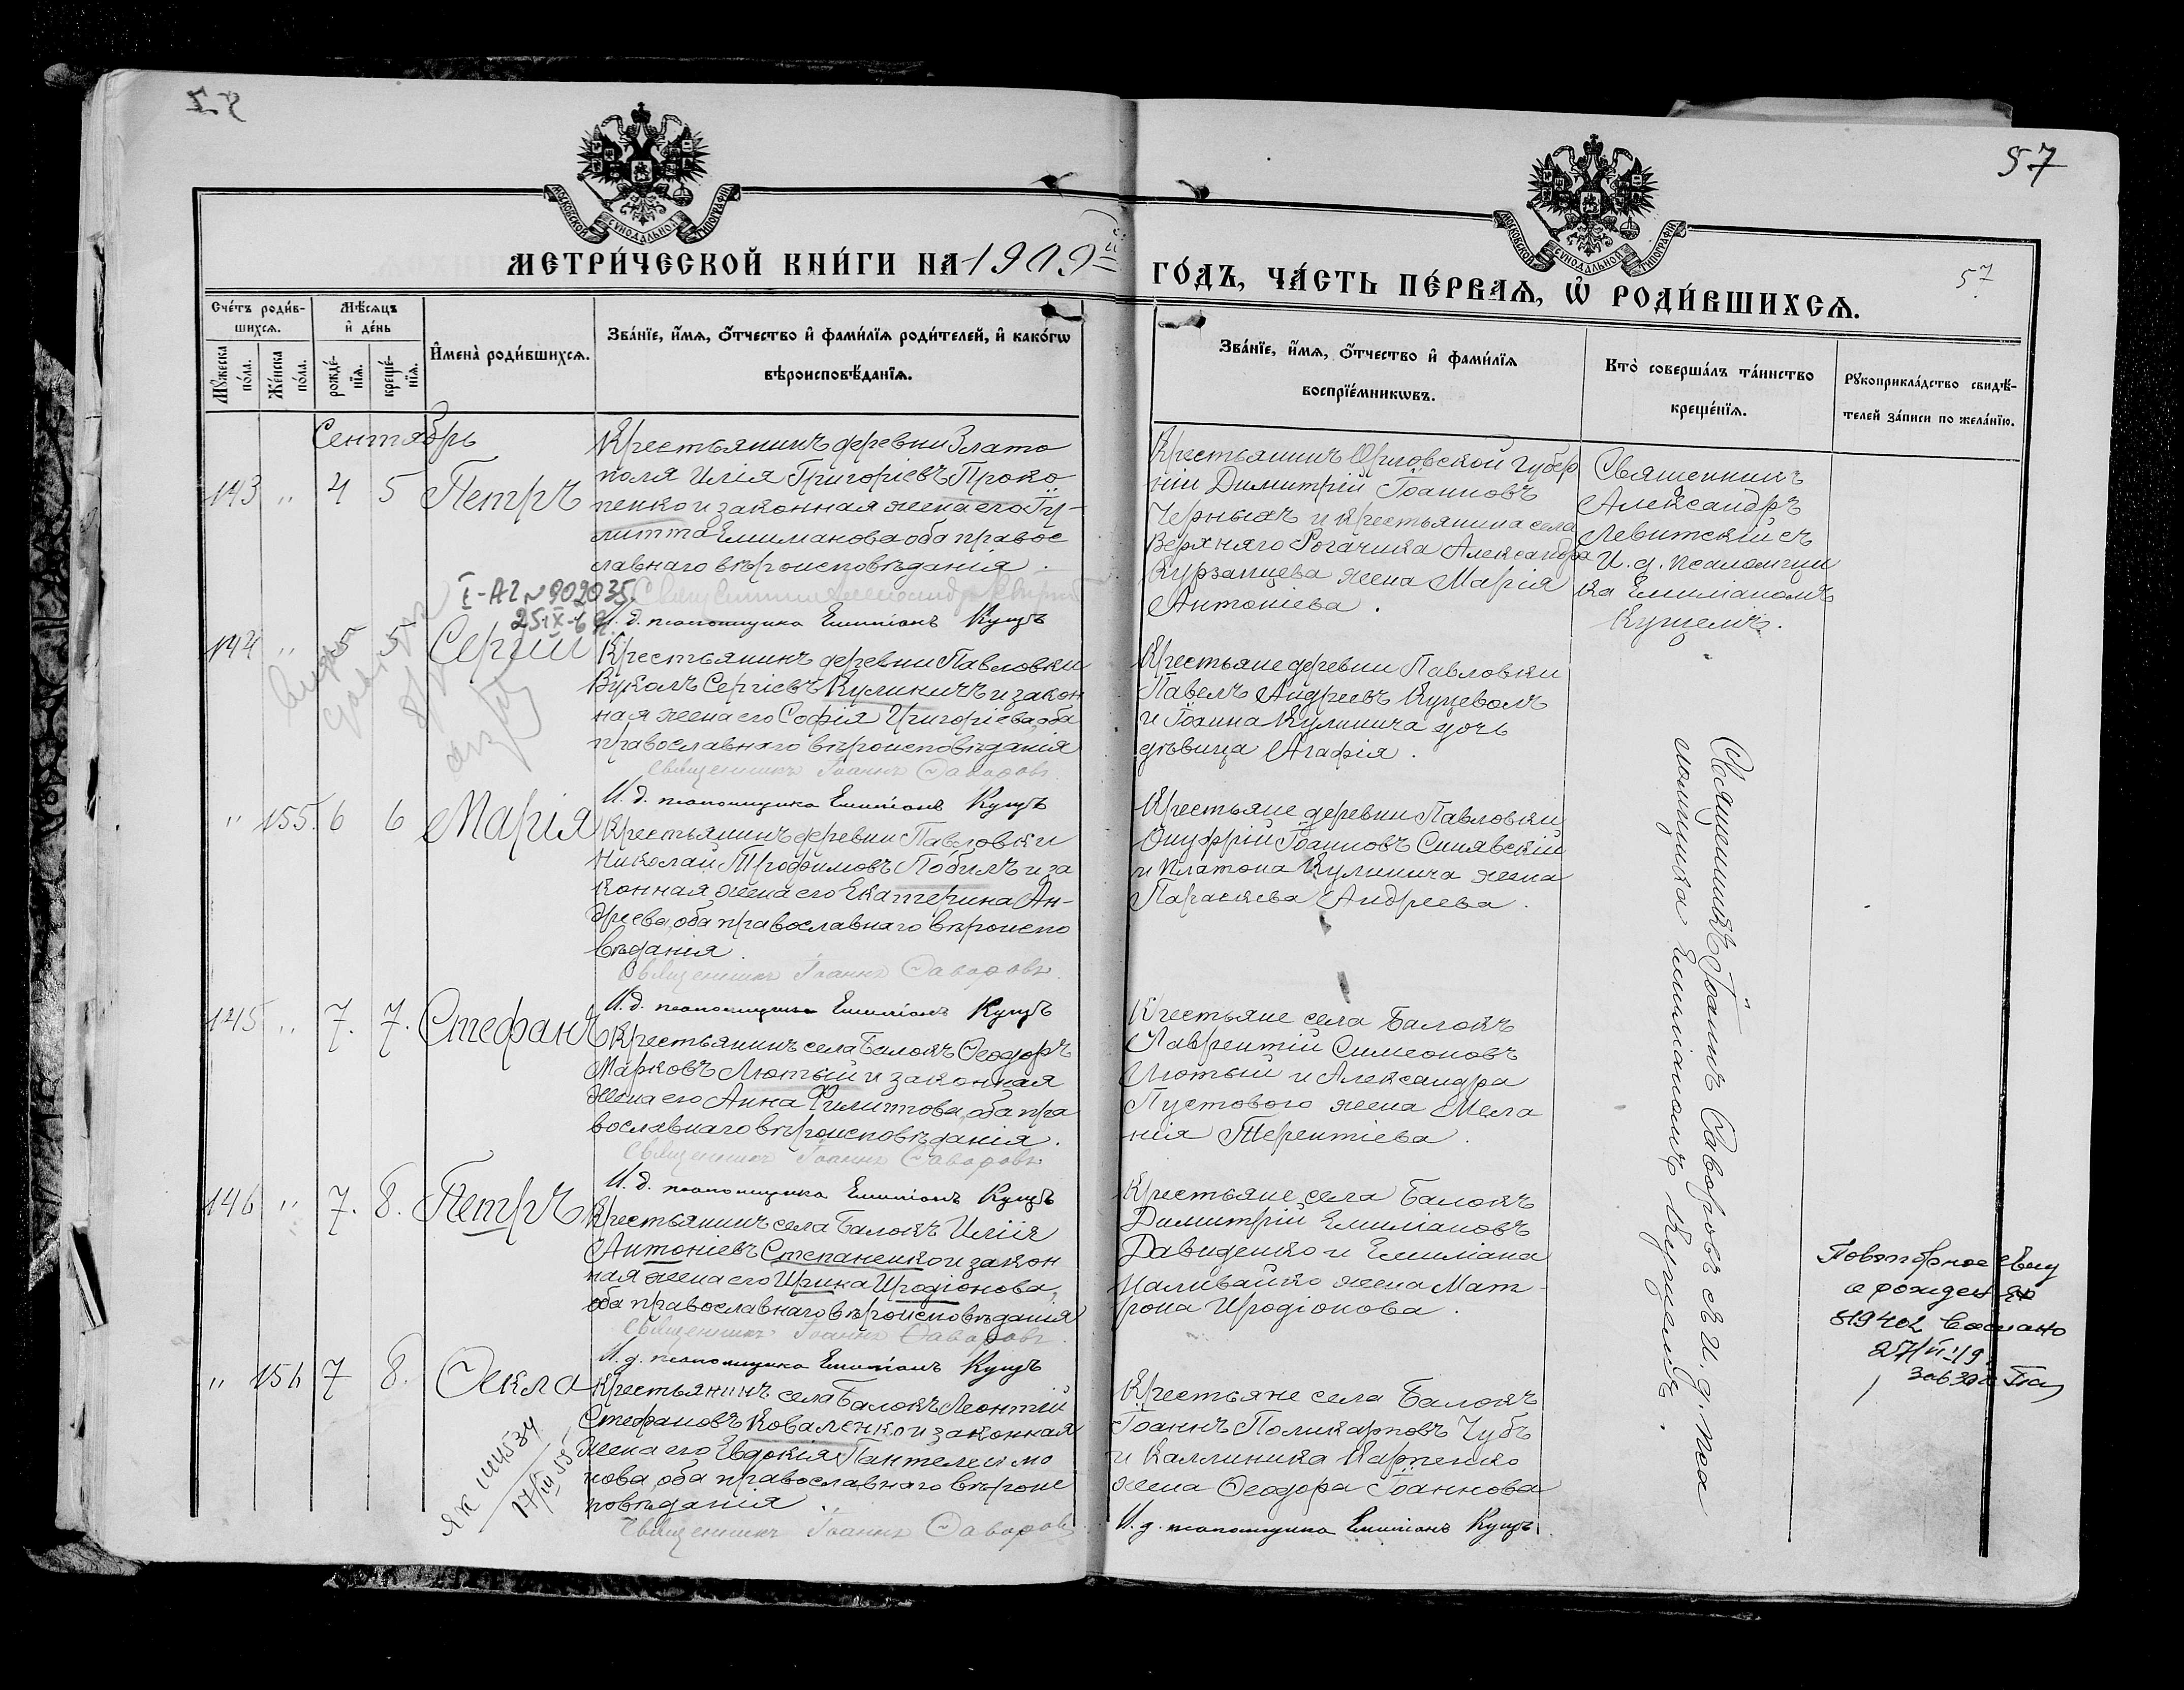 57
МОСКОВСКОЙ СѴНОДАЛЬНОЙ ТИПОГРАФІИ
МОСКОВСКОЙ СѴНОДАЛЬНОЙ ТИПОГРАФІИ
МЕТРИ́ЧЕСКОЙ КНИ́ГИ НА 1909й ГО́ДЪ, ЧА́СТЬ ПЕ́РВАѦ, Ѽ РОДИ́ВШИХСѦ.
57
Сче́тъ роди́в-
шихсѧ.
Мꙋ́жеска
по́ла.
Же́нска
по́ла.
Мѣ́сѧцъ
и҆ де́нь
рожде́-
нїѧ.
креще́-
нїѧ.
И҆мена̀ роди́вшихсѧ.
Зва́нїе, и҆́мѧ, ѻ҆́тчество и҆ фами́лїѧ роди́телей, и҆ како́гѡ
вѣроисповѣ́данїѧ.
Зва́нїе, и҆́мѧ, ѻ҆́тчество и҆ фами́лїѧ
воспрїе́мникѡвъ.
Кто̀ соверша́лъ та́инство
креще́нїѧ.
Рꙋкоприкла́дство свидѣ́-
телей за́писи по жела́нїю.
Сентябрь
143 " 4 5 Петръ
Крестьянинъ деревни Злато
поля Илія Григоріевъ Проко
пенко и законная жена его Гу-
литта Емиліанова оба правос
лавнаго вѣроисповѣданія.
И. д. псаломщика Емиліанъ Кущъ
Крестьянинъ Орловской губер
ніи Димитрій Іоанновъ
Черныхъ и крестьянина села
Верхняго Рогачика Александра
Курзанцева жена Марія
Антоніева.
Священникъ
Александръ
Левитскій съ
И. д. псаломщи
ка Емиліаномъ
Кущемъ.
I-АГ № 902035
25-IX-
144 " 5 5 Сергій
Крестьянинъ деревни Павловки
Вуколъ Сергіевъ Кулиничъ и закон
ная жена его Софія Григоріева, оба
православнаго вѣроисповѣданія
Священникъ Іоаннъ Ѳаворовъ.
И. д. псаломщика Емиліанъ Кущъ
Крестьяне деревни Павловки
Павелъ Андреевъ Куцеволъ
и Іоанна Кулинича дочь
дѣвица Агафія.
" 155. 6 6 Марія
Крестьянинъ деревни Павловки
Николай Трофимовъ Побилъ и за
конная жена его Екатерина Ан-
дреева, оба православнаго вѣроиспо
вѣданія.
Священникъ Іоаннъ Ѳаворовъ.
И. д. псаломщика Емиліанъ Кущъ
Крестьяне деревни Павловки
Онуфрій Іоанновъ Синявскій
и Платона Кулинича жена
Параскева Андреева.
145 " 7. 7. Стефанъ
Крестьянинъ села Балокъ Ѳеодоръ
Марковъ Лютый и законная
жена его Анна Филиппова, оба пра
вославнаго вѣроисповѣданія.
Священникъ Іоаннъ Ѳаворовъ
И. д. псаломщика Емиліанъ Кущъ
Крестьяне села Балокъ
Лаврентій Симеоновъ
Лютый и Александра
Пустового жена Мела
нія Терентіева.
146 " 7. 8. Петръ
Крестьянинъ села Балокъ Илія
Антоніевъ Степаненко и закон
ная жена его Ирина Иродіонова,
оба православнаго вѣроисповѣданія
Священникъ Іоаннъ Ѳаворовъ
И. д. псаломщика Емиліанъ Кущъ
Крестьяне села Балокъ
Димитрій Емиліановъ
Давиденко и Емиліана
Наливайко жена Мат-
рона Иродіонова.
Священникъ Іоаннъ Ѳаворовъ съ И. д. пса
ломщика Емиліаномъ Кущемъ.
Повторное
о рожден
819402
" 156 7 8. Ѳекла
Крестьянинъ села Балокъ Леонтій
Стефановъ Коваленко и законная
жена его Евдокія Пантелеимо
нова, оба православнаго вѣроис
повѣданія.
Священникъ Іоаннъ Ѳаворовъ
Крестьяне села Балокъ
Іоаннъ Поликарповъ Чубъ
и Каллиника Карпенко
жена Ѳеодора Іоаннова
И. д. псаломщика Емиліанъ Кущъ.
17/III 55